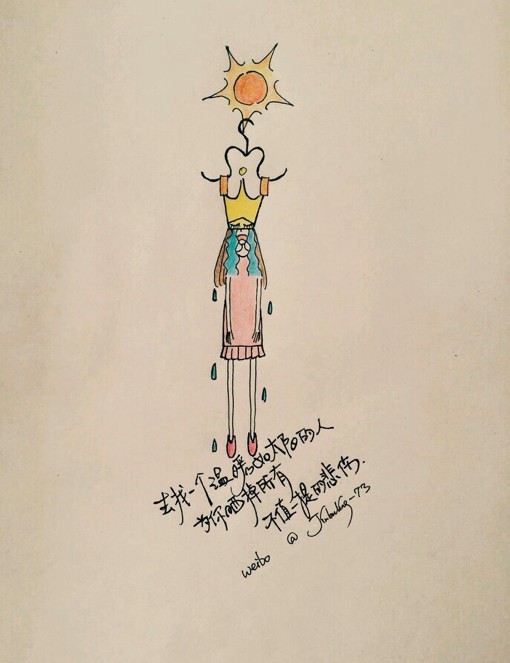 去找一个温暖如太阳的人
为你晒掉所有
不值一提的悲伤.
weibo @